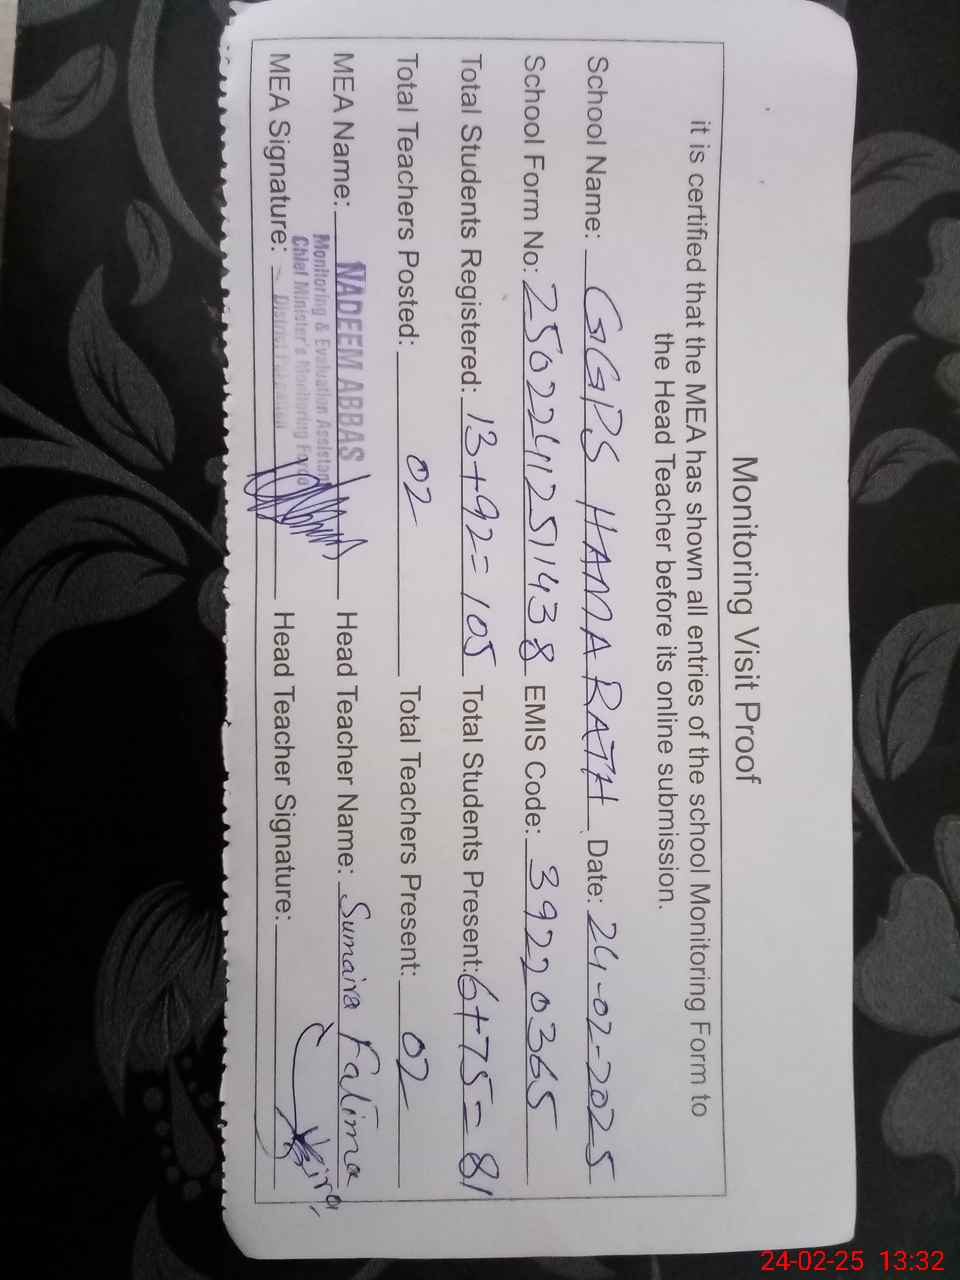 Monitoring Visit Proof
it is certified that the MEA has shown all entries of the school Monitoring Form to
the Head Teacher before its online submission.
School Name: GGPS HAMARATH Date: 24-02-2025
School Form No: 250224112511438 EMIS Code: 39220365
Total Students Registered: 13+92=105 Total Students Present: 6+75=81
Total Teachers Posted: 02 Total Teachers Present: 02
MEA Name: NADEEM ABBAS Head Teacher Name: Sumaira Fatima
Monitoring & Evaluation Assistant
Chief Minister's Monitoring Force
District
MEA Signature: Head Teacher Signature:
24-02-25 13:32